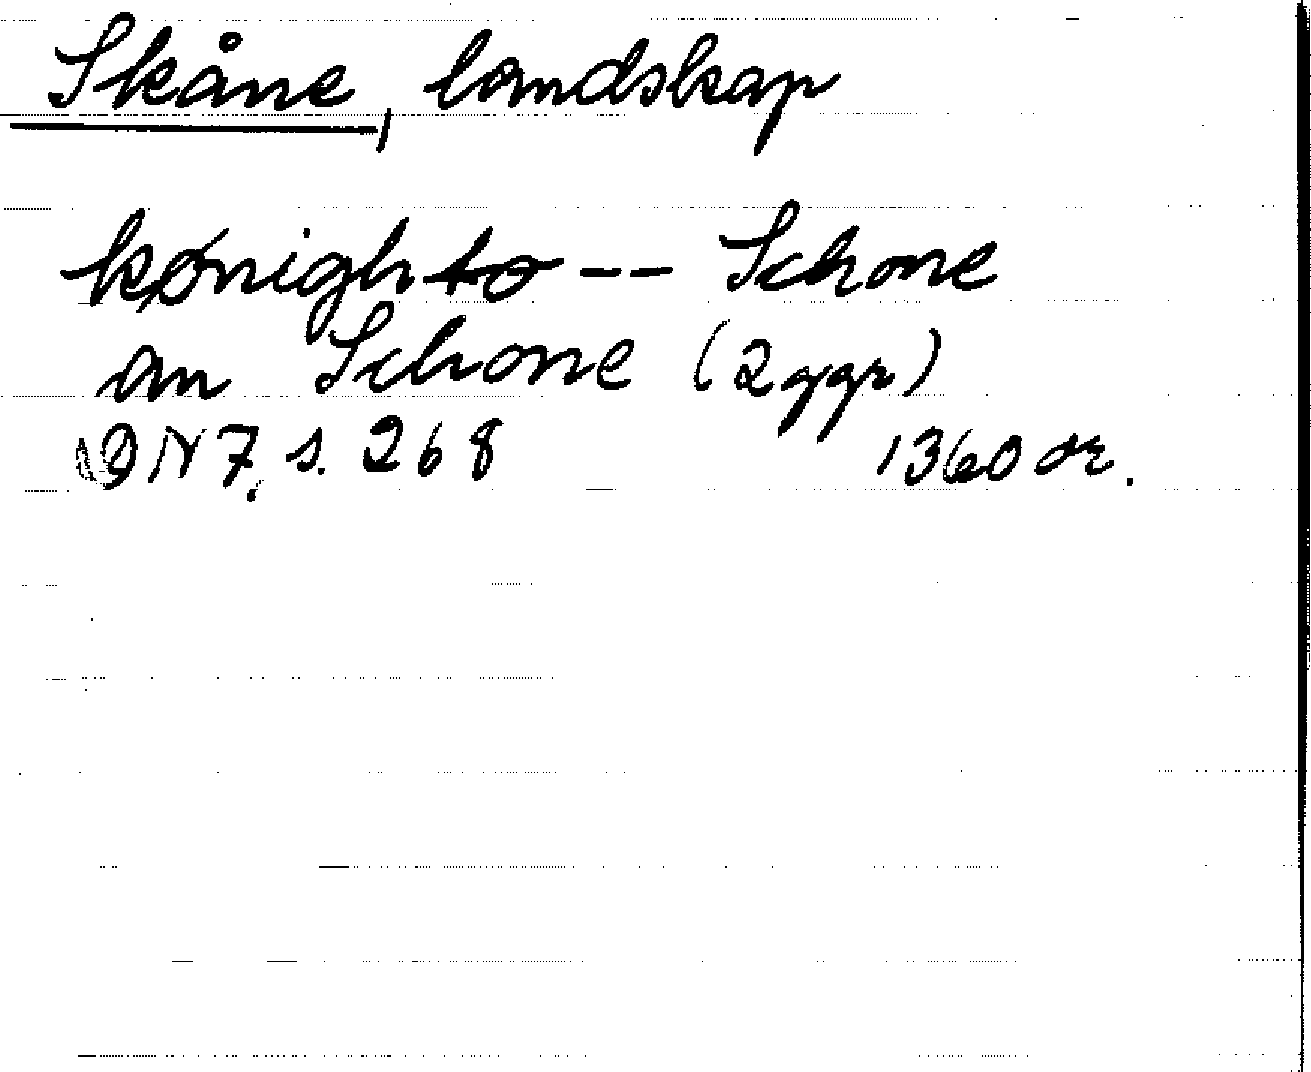 Skåne, landskap
kønigh to -- Schone
an Schone (2 ggr)
DN 7, s. 268 1360 or.